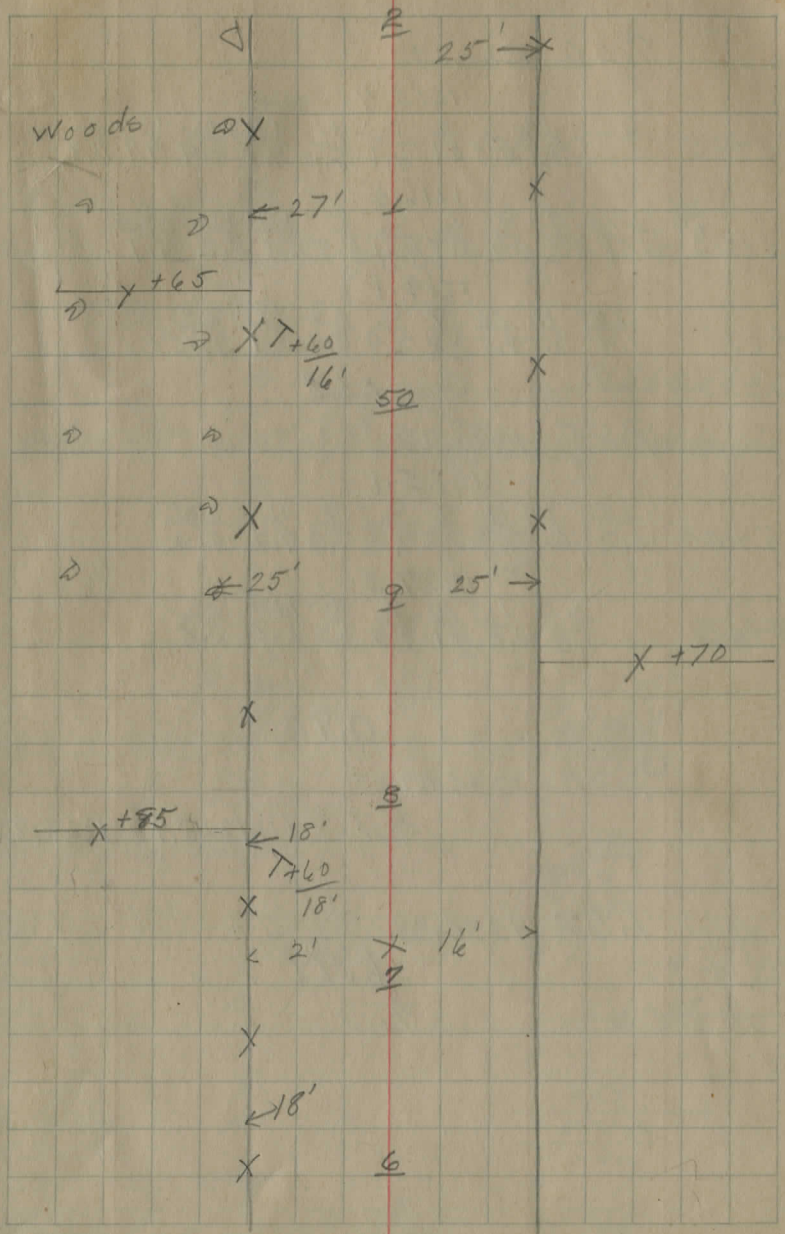 2
25'
Woods
27' 1
+65
T+60
16'
50
25' 9 25'
+70
8
+85
18'
T+60
18'
2' 16'
7
18'
6